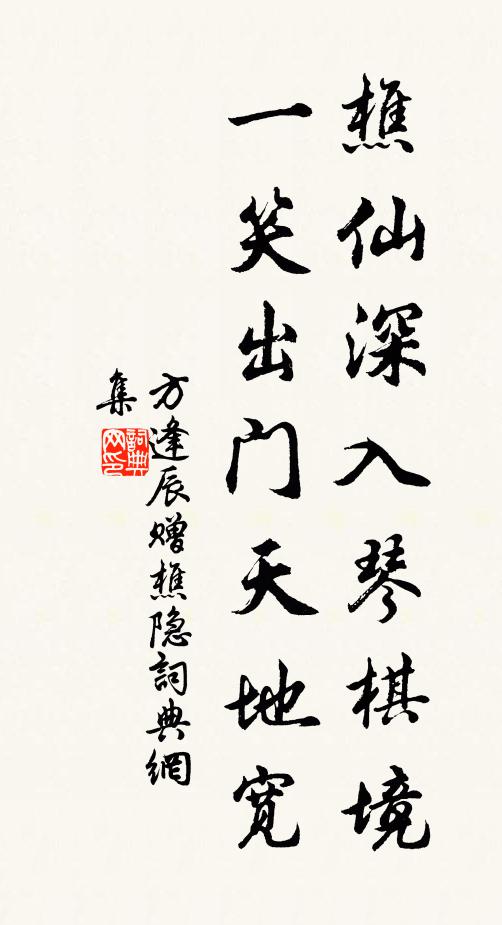 樵仙深入琴棋境
一笑出门天地寛
方逢辰赠樵隐詞典網
集
詞典
网印